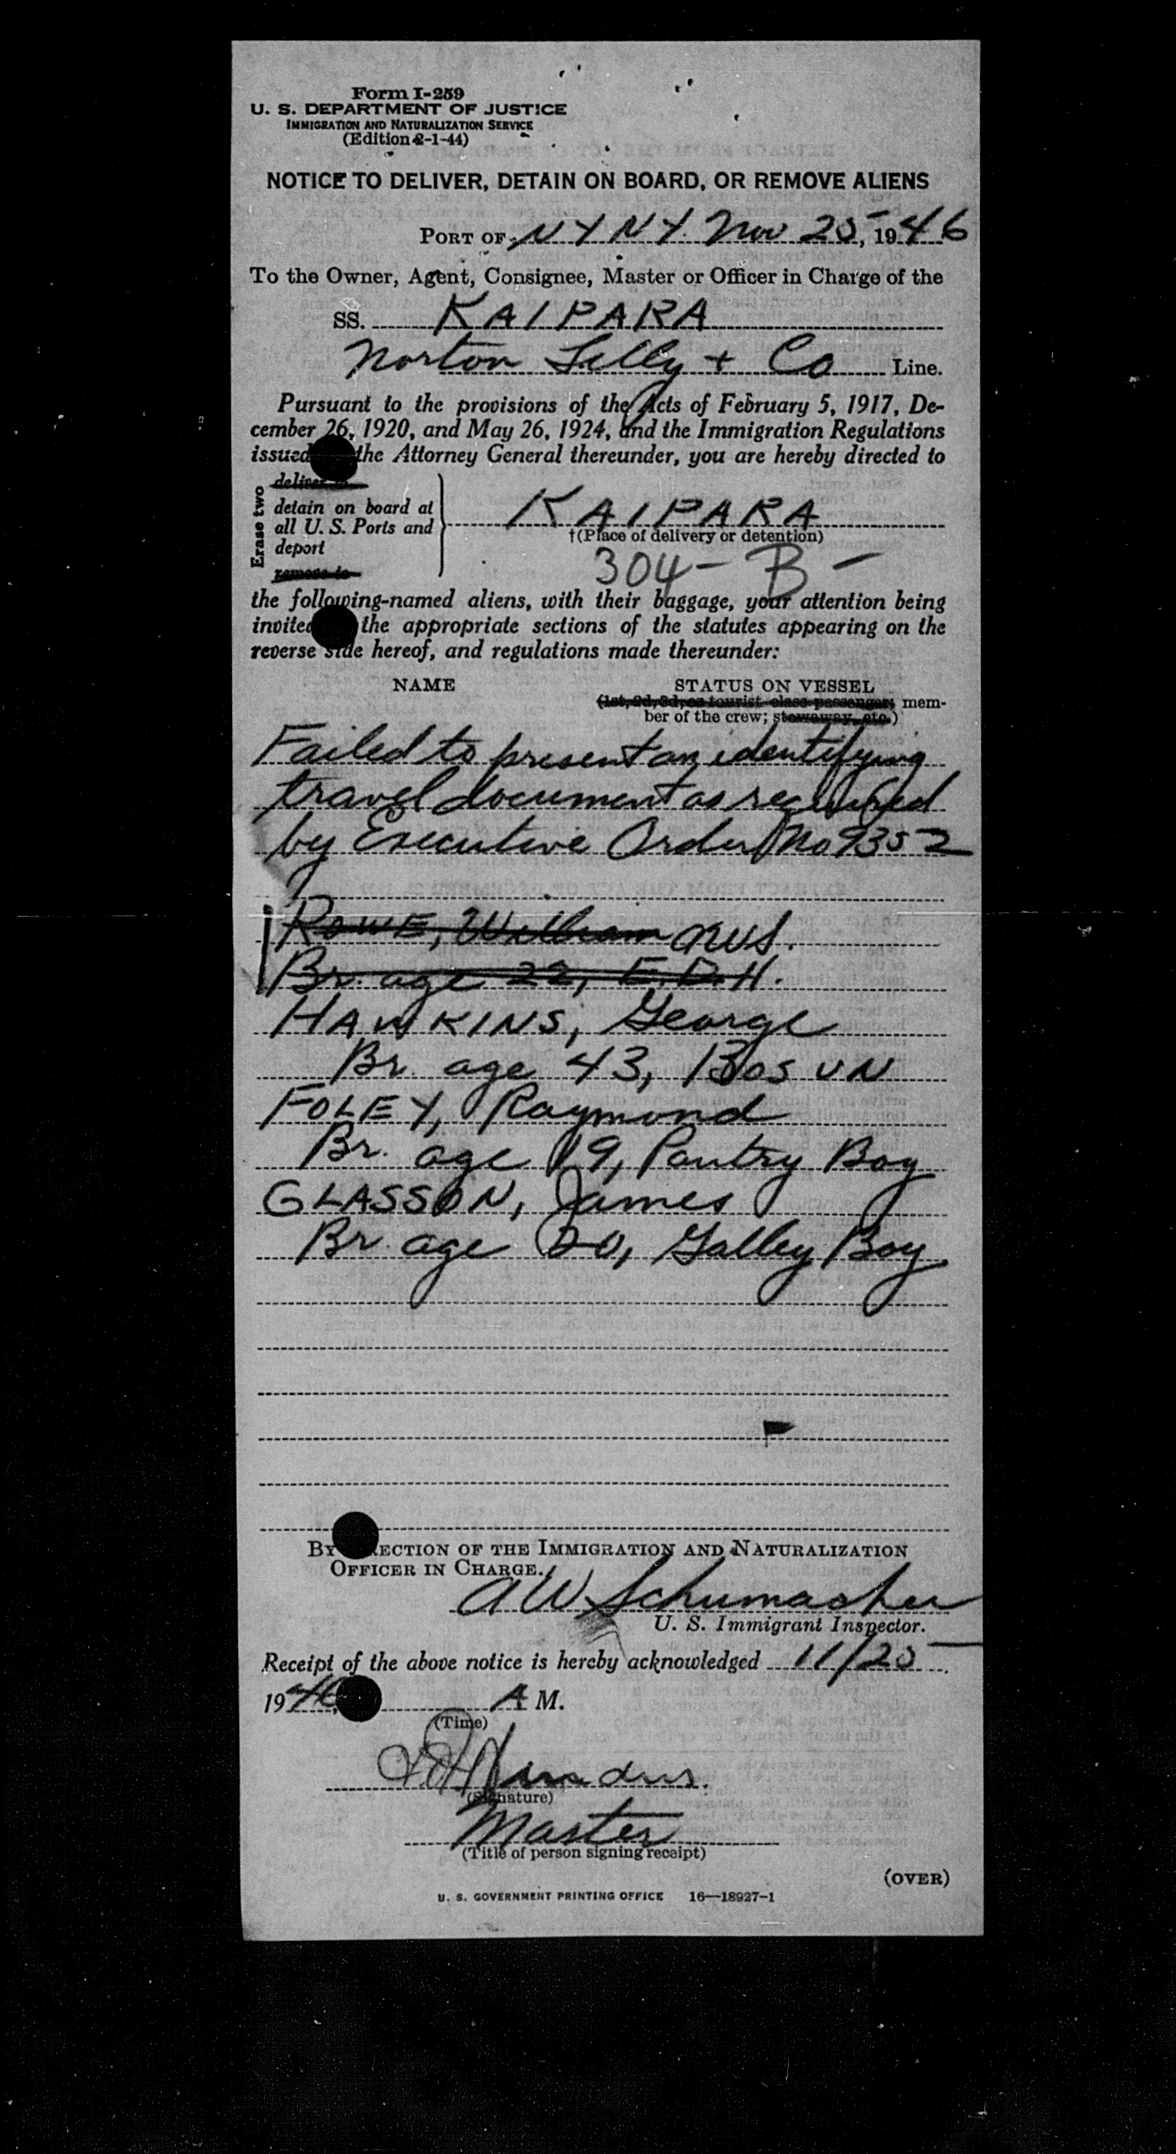 Form I-259
U. S. DEPARTMENT OF JUSTICE
IMMIGRATION AND NATURALIZATION SERVICE
(Edition 2-1-44)
NOTICE TO DELIVER, DETAIN ON BOARD, OR REMOVE ALIENS
PORT OF NY NY. Nov 25, 1946
To the Owner, Agent, Consignee, Master or Officer in Charge of the
SS. KAIPARA
Norton Lilly + Co Line.
Pursuant to the provisions of the Acts of February 5, 1917, De-
cember 26, 1920, and May 26, 1924, and the Immigration Regulations
issued the Attorney General thereunder, you are hereby directed to
Erase two
deliver to
detain on board at
all U. S. Ports and
deport
remove to
KAIPARA
†(Place of delivery or detention)
304- B -
the following-named aliens, with their baggage, your attention being
invited the appropriate sections of the statutes appearing on the
reverse side hereof, and regulations made thereunder:
NAME STATUS ON VESSEL
(1st, 2d, 3d, or tourist class passenger; mem-
ber of the crew; stowaway, etc.)
Failed to present an identifying
travel document as required
by Executive Order No 9352
ROWE, William aws.
Br. age 22, E.D.H.
HAWKINS, George
Br. age 43, Bosun
FOLEY, Raymond
Br. age 19, Pantry Boy
GLASSON, James
Br. age 20, Galley Boy
BY ECTION OF THE IMMIGRATION AND NATURALIZATION
OFFICER IN CHARGE.
AW Schumacher
U. S. Immigrant Inspector.
Receipt of the above notice is hereby acknowledged 11/25
1946 A M.
(Time)
(Signature)
Master
(Title of person signing receipt)
(OVER)
U. S. GOVERNMENT PRINTING OFFICE 16—18927-1